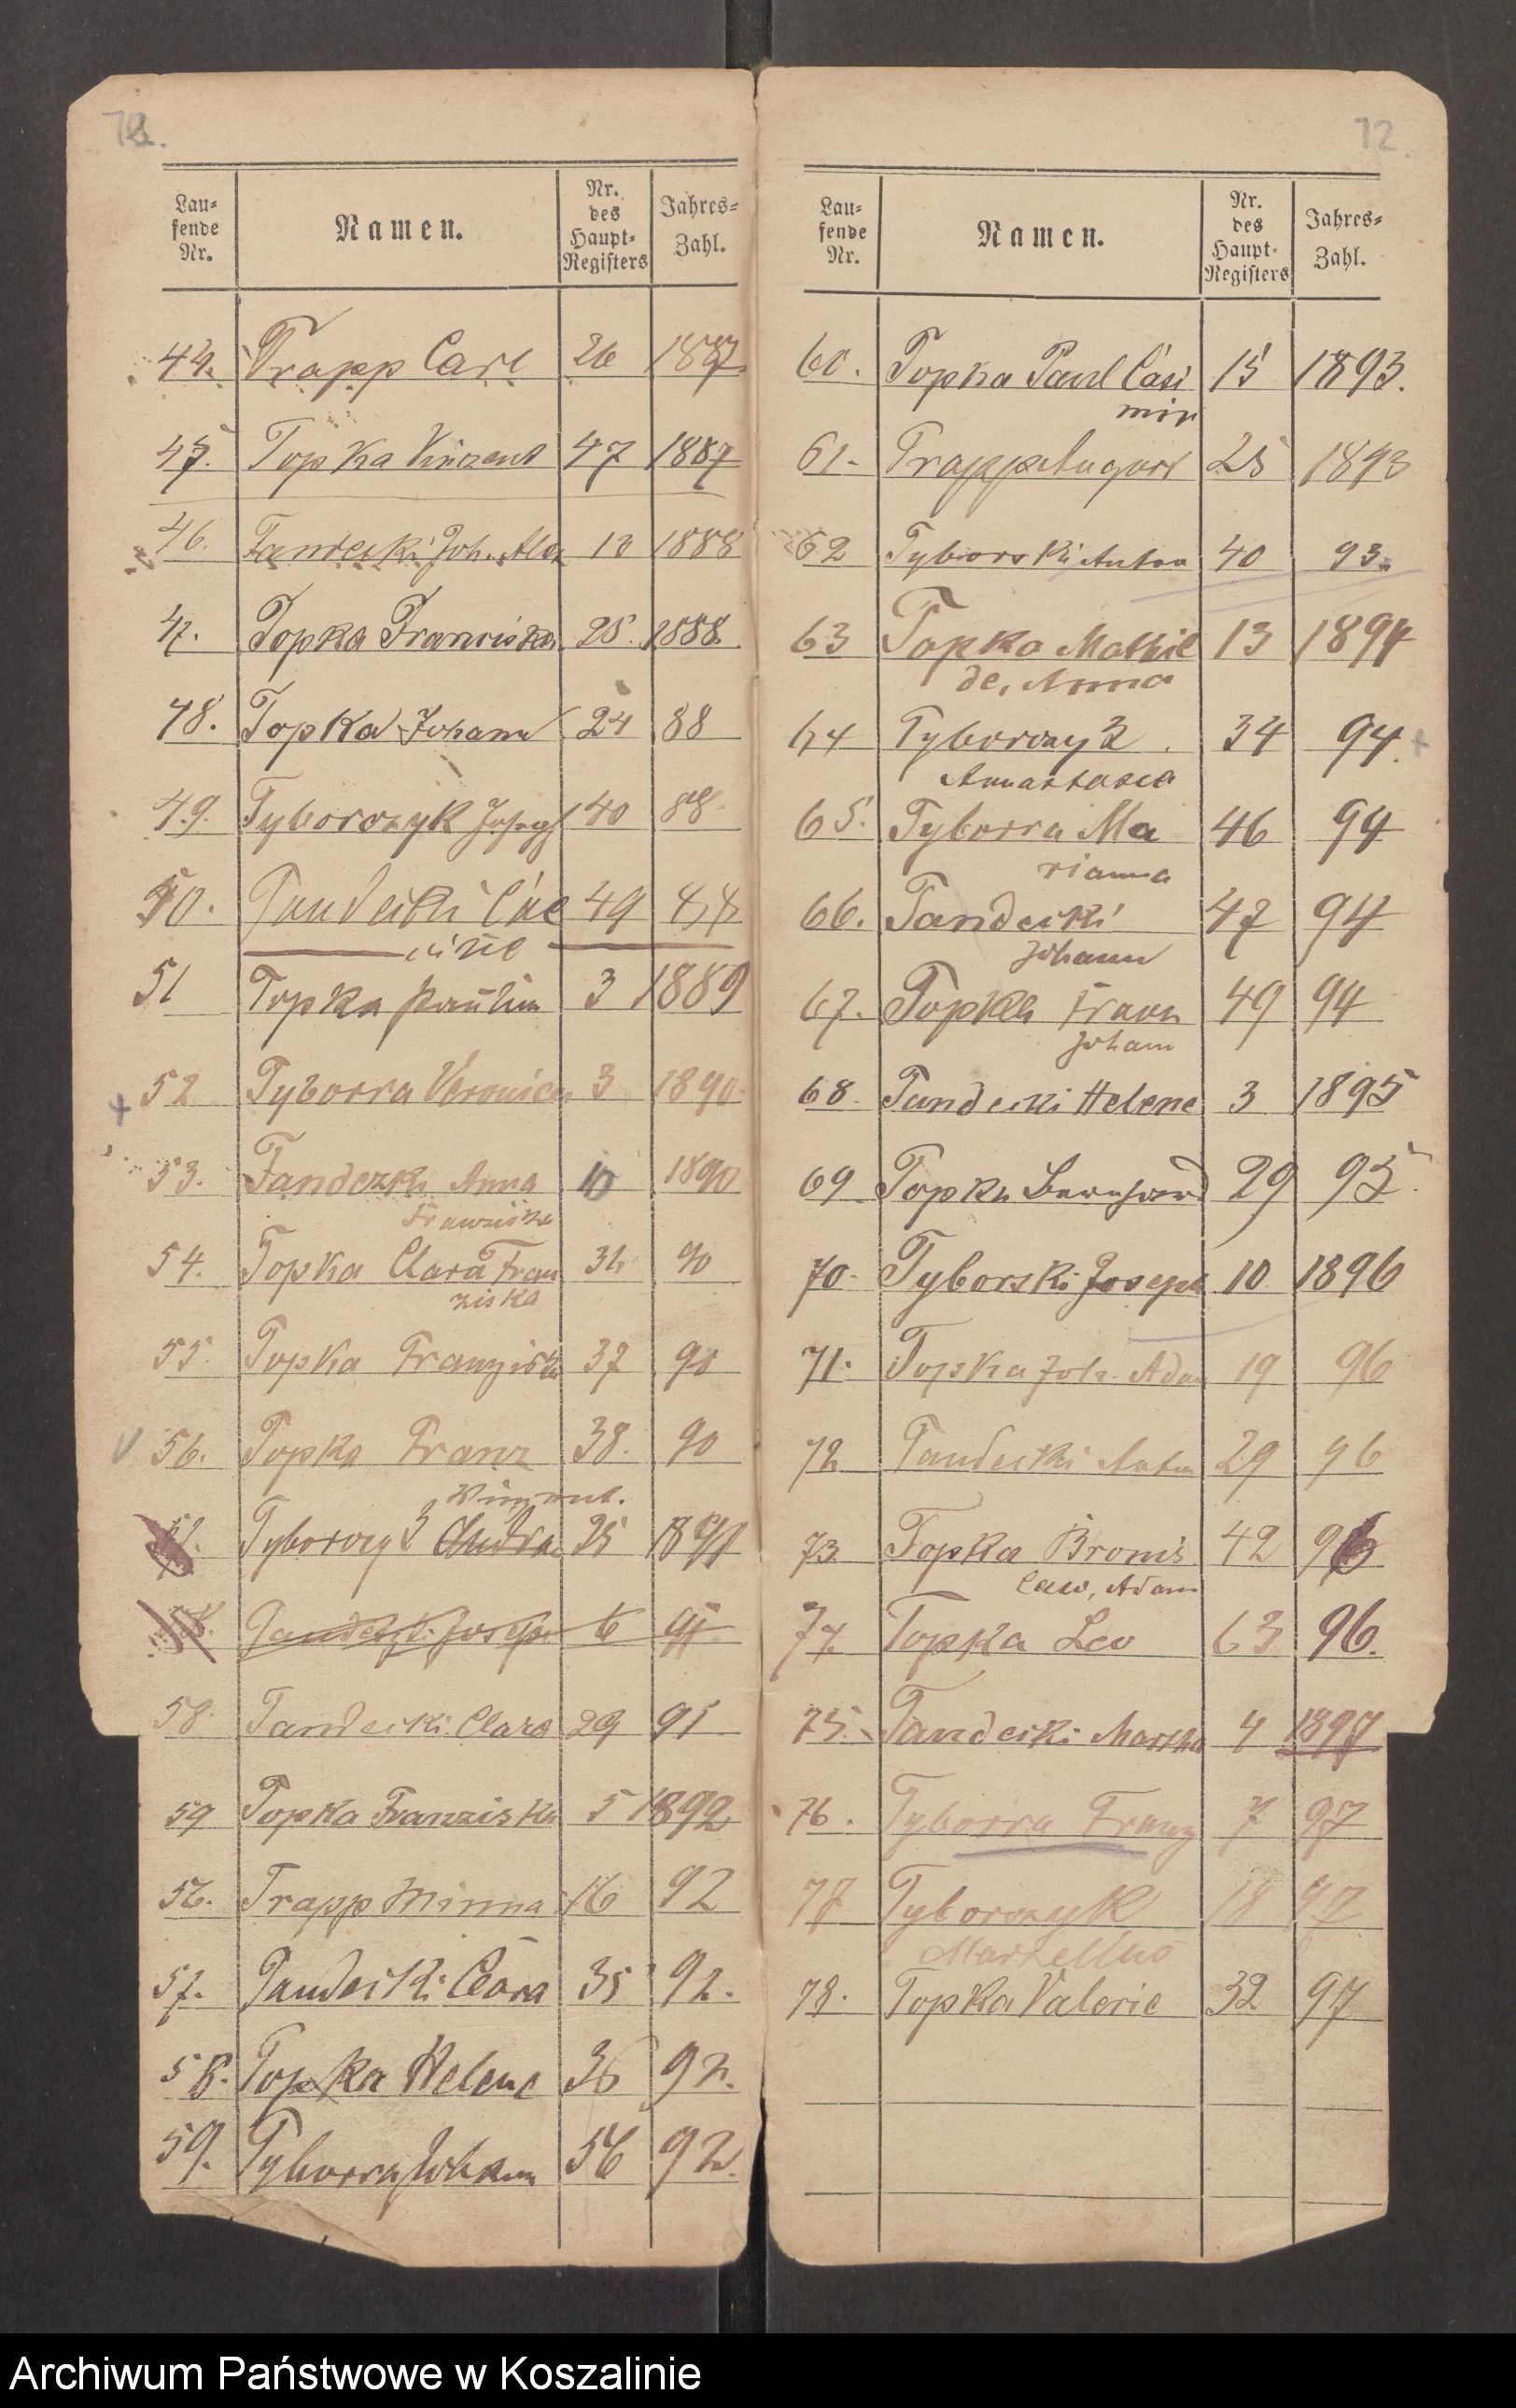 12.
Lau-
fende
Nr.
Namen.
Nr.
des
Haupt-
Registers
Jahres-
Zahl.
44. Trapp Carl 26 1887
45. Topka Vinzent 47 1887
46. Tandecki Joh. Alex 1888
47. Topka Franziska 25. 1888.
48. Topka Johann 24 88
49. Tyborczyk Joseph 40 88
50. Tandecki Cäc 49 88
51 Topka Paulin 3 1889
52 Tyborra Veronica 3 1890
53. Tandezki Anna 10 1890
Franziska
54. Topka Clara Fran 34 90
ziska
55. Topka Franziska 37 90
56. Topka Franz 38. 90
Vinzent.
57. Tyborczyk 25 1891
Joseph 6 91
58. Tandecki Clara 29 91
59 Topka Franziska 5 1892
56. Trapp Minna 16 92
57. Tandecki Clara 35 92.
58. Topka Helene 36 92.
59. Tyborra Johann 56 92.
12.
Lau-
fende
Nr.
Namen.
Nr.
des
Haupt-
Registers
Jahres-
Zahl.
60. Topka Paul Casi 15 1893.
mir
61. Trapp August 25 1893
62 Tyborski Anton 40 93.
63 Topka Mathil 13 1894
de, Anna
64 Tyborczyk 34 94.
Annastasia
65. Tyborra Ma 46 94
rianna
66. Tandecki 47 94
Johann
67. Topka Franz 49 94
Johann
68. Tandecki Helene 3 1895
69 Topka Bernhard 29 95.
70. Tyborski Joseph 10 1896
71. Topka Joh. Adam 19 96
72 Tandecki Anton 29 96
73 Topka Bronis 42 96
law, Adam
74 Topka Leo 63 96.
75. Tandecki Martha 4 1897
76. Tyborra Franz 7 97
77 Tyborczyk 18 97
Marzellus
78. Topka Valerie 32 97
Archiwum Państwowe w Koszalinie